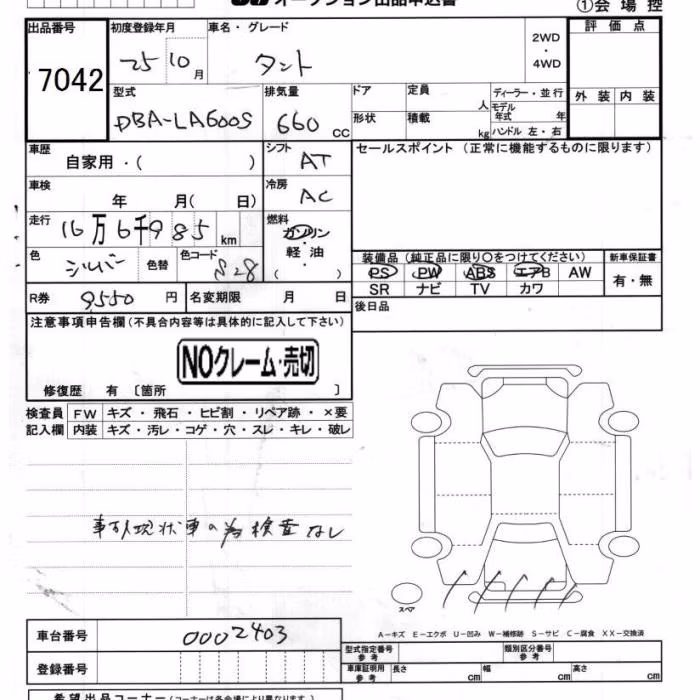 オークション出品申込書
①会場控
出品番号 初度登録年月 車名・グレード 評価点
7042 25 10月 タント 2WD・4WD
型式 排気量 ドア 定員 人 ディーラー・並行 外装 内装
DBA-LA600S 660 CC 形状 積載 kg モデル年式 年 ハンドル 左・右
車歴 自家用・( ) シフト AT セールスポイント(正常に機能するものに限ります)
車検 年 月( 日) 冷房 AC
走行 16万6千985 km 燃料 ガソリン 軽油 ( )
色 シルバー 色替 色コード S28 装備品(純正品に限り○をつけてください) 新車保証書
PS PW ABS エアB AW 有・無
SR ナビ TV カワ
R券 9,550 円 名変期限 月 日 後日品
注意事項申告欄(不具合内容等は具体的に記入して下さい)
NOクレーム・売切
修復歴 有 〔箇所 〕
検査員 FW キズ・飛石・ヒビ割・リペア跡・×要
記入欄 内装 キズ・汚レ・コゲ・穴・スレ・キレ・破レ
事故現状車の為検査なし
スペア
A-キズ E-エクボ U-凹み W-補修跡 S-サビ C-腐食 XX-交換済
車台番号 0002403
型式指定番号参考 類別区分番号参考
登録番号 車庫証明用参考 長さ cm 幅 cm 高さ cm
希望出品コーナー(コーナーは各会場により異なります)